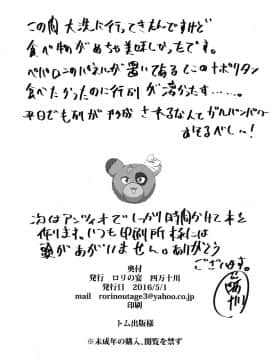 この間大洗に行ってきたんですけど
食べ物がめちゃ美味しかったです。
ペパロニのパネルが置いてあるとこのナポリタン
食べたかったのに行列が凄かったす……。
平日でも列が形成されるなんてガルパンパワー
おそるべし…!
次はアンツィオでしっかり時間かけて本を
作ります。いつも印刷所様には
頭があがりません。ありがとう
ございます。
四万十川
奥付
発行 ロリの宴 四万十川
発行日 2016/5/1
mail rorinoutage3@yahoo.co.jp
印刷
トム出版様
※未成年の購入、閲覧を禁ず